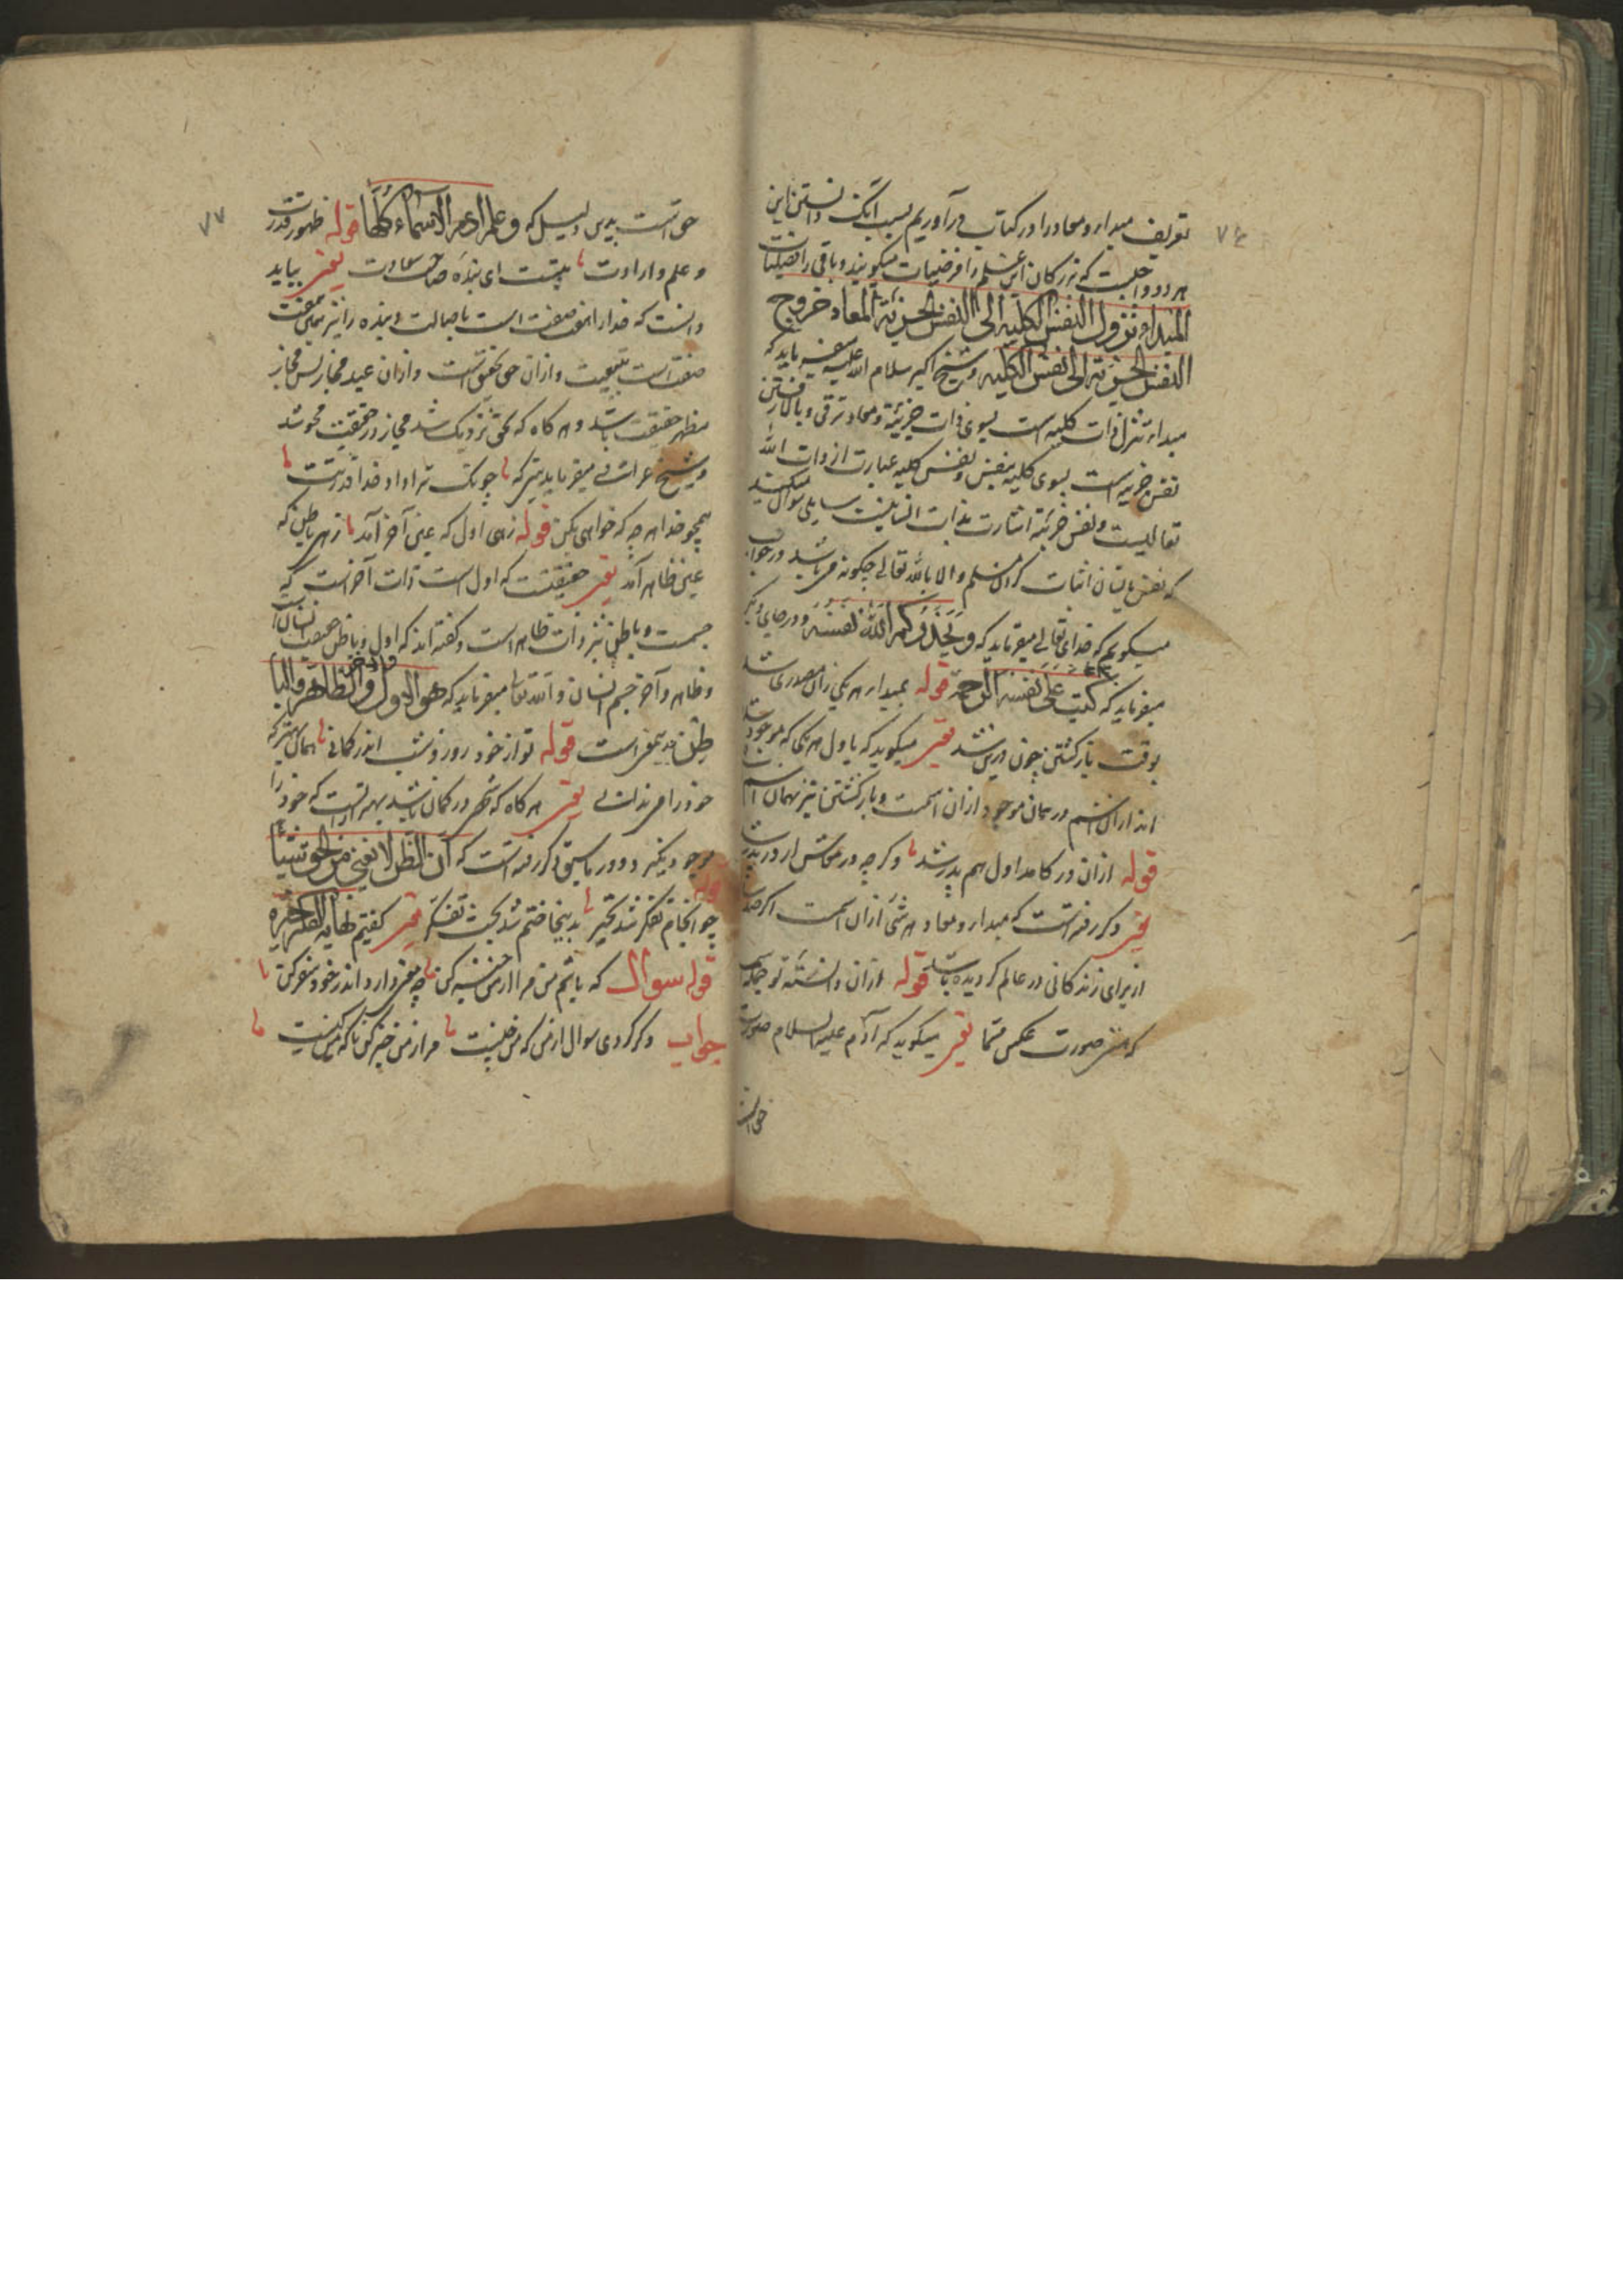 ۷۶
تعریف مبداء و معاد را در کتاب در آوردیم بسبب آنک دانستن این
هر دو واجبست که بزرگان این علم را فرضیات میگویند و باقی را فضیلیات
المبداء نزول النفس الکلیه الی النفس الجزئیة المعاد خروج
النفس الجزئیة الی النفس الکلیه و شیخ اکبر سلام الله علیه میفرماید که
مبداء تنزل ذات کلیه است بسوی ذات جزئیة و معاد ترقی و بالا رفتن
نفس جزئیه است بسوی کلیه بنفس و نفس کلیه عبارت از ذات الله
تعالیست و نفس جزئیة اشارت بذات انسانیست سایلی سوال میکند
که نفس بانسان اثبات کردن مسلم و الا بالله تعالی چگونه فرماید در جواب
میگویم که خدای تعالی میفرماید که و یحذرکم الله نفسه و در جای دیگر
میفرماید که کتب علی نفسه الرحمة قوله بمبداء هر یکی زان مصدری شد
بوقت بازگشتن چون دری شد تقریر میگوید که باول هر یکی که موجود
اند از آن اسم در همان موجود از آن اسمست و بازگشتن نیز بهمان اسم
قوله ازان در کامد اول هم بدر شد وگرچه در معاش از در بدر شد
تقریر ذکر رفته است که مبداء و معاد هر شی ازان اسمست اگر چه
از برای زندگانی در عالم گردیده باشد قوله ازان دانسته تو جمله اسما
که هستی صورت عکس مسما تقریر میگوید که آدم علیه السلام صورت
حق است
۷۷
حق است بدین دلیل که و علم ادم الاسماء کلها قوله ظهور قدرت
و علم و ارادت بتست ای بنده صاحب سعادت تقریر بباید
دانست که خدا را هفت صفت است باصالت و بنده را نیز همین هفت
صفت است بتبعیت و ازان حق تحقیق است و ازان عبد مجاز پس مجاز
مظهر حقیقت باشد و هر گاه که بحق نزدیک شد مجاز در حقیقت محو شد
و شیخ عراقی میفرماید بیت که چونک ترا داد خدا قدرتت
همچو خدا هر چه که خواهی بکن قوله زهی اول که عین آخر آمد زهی باطن که
عین ظاهر آمد تقریر حقیقتت که اول است ذات آخر است که
جسمت و باطن نیز ذات ظاهر است و گفته اند که اول و باطن حقیقت انسان است
و ظاهر و آخر جسم انسان و الله تعالی میفرماید که هو الاول والاخر والظاهر والبا
طن بدین معنی است قوله تو از خود روز و شب اندر گمانی همان بهتر که
خود را می ندانی تقریر هر گاه که شخص در گمان باشد بهتر آنست که خود را
موجود نگیرد و در ما سبق ذکر رفته است که ان الظن لا یغنی من الحق شیئا
قوله چو انجام تفکر شد تحیر بدینجا ختم شد بحث تفکر تقریر گفتیم نهایة الفکر الحیرة
قوله سوال که باشم من مرا از من خبر کن چه معنی دارد اندر خود سفر کن
جواب دگر کردی سوال از من که من چیست مرا از من خبر کن تا که من کیست